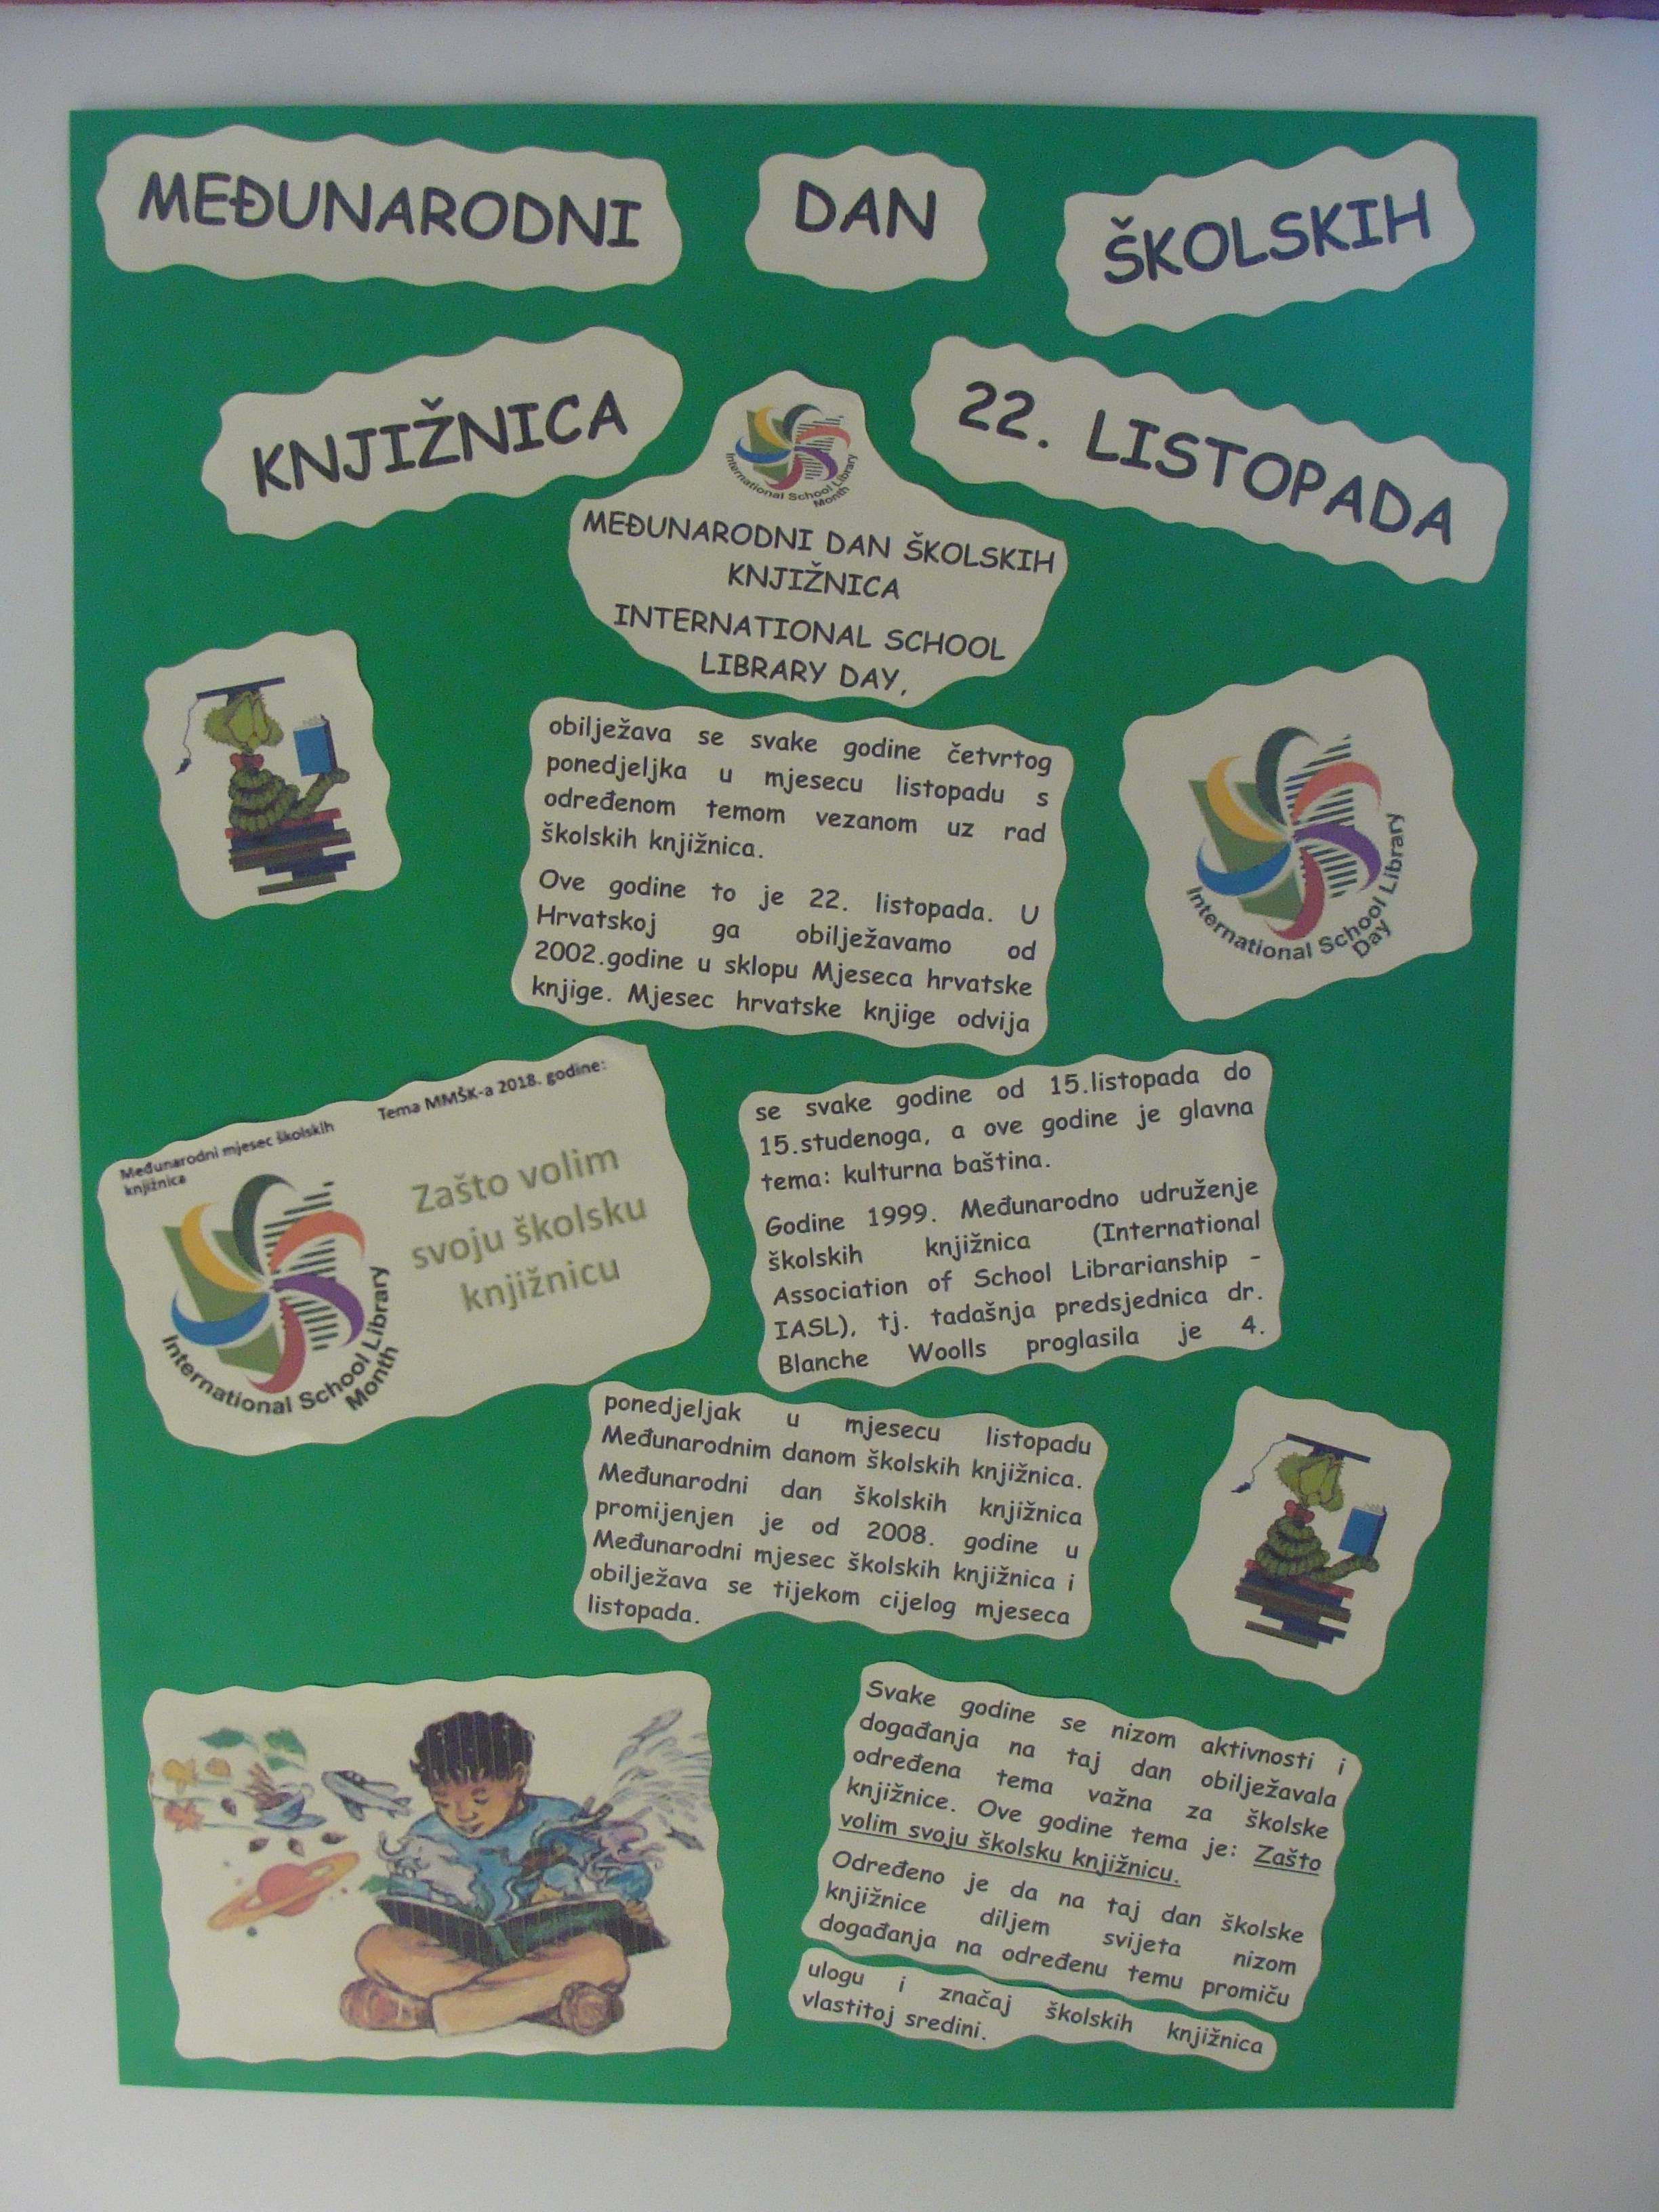 MEĐUNARODNI
DAN
ŠKOLSKIH
KNJIŽNICA
22. LISTOPADA
International School Library
Month
MEĐUNARODNI DAN ŠKOLSKIH
KNJIŽNICA
INTERNATIONAL SCHOOL
LIBRARY DAY,
obilježava se svake godine četvrtog
ponedjeljka u mjesecu listopadu s
određenom temom vezanom uz rad
školskih knjižnica.
Ove godine to je 22. listopada. U
Hrvatskoj ga obilježavamo od
2002.godine u sklopu Mjeseca hrvatske
knjige. Mjesec hrvatske knjige odvija
International School Library
Day
Međunarodni mjesec školskih
knjižnica
Tema MMŠK-a 2018. godine:
Zašto volim
svoju školsku
knjižnicu
International School Library
Month
se svake godine od 15.listopada do
15.studenoga, a ove godine je glavna
tema: kulturna baština.
Godine 1999. Međunarodno udruženje
školskih knjižnica (International
Association of School Librarianship -
IASL), tj. tadašnja predsjednica dr.
Blanche Woolls proglasila je 4.
ponedjeljak u mjesecu listopadu
Međunarodnim danom školskih knjižnica.
Međunarodni dan školskih knjižnica
promijenjen je od 2008. godine u
Međunarodni mjesec školskih knjižnica i
obilježava se tijekom cijelog mjeseca
listopada.
Svake godine se nizom aktivnosti i
događanja na taj dan obilježavala
određena tema važna za školske
knjižnice. Ove godine tema je: Zašto
volim svoju školsku knjižnicu.
Određeno je da na taj dan školske
knjižnice diljem svijeta nizom
događanja na određenu temu promiču
ulogu i značaj školskih knjižnica
vlastitoj sredini.